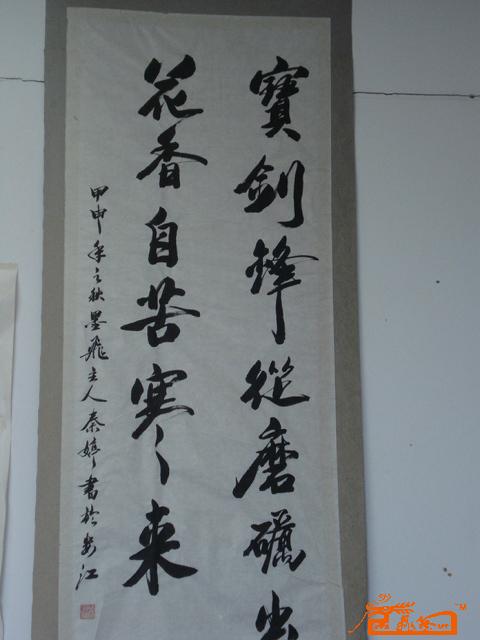 寶劍鋒從磨礪出
花香自苦寒来
甲申年之秋墨飛主人秦婷書於江